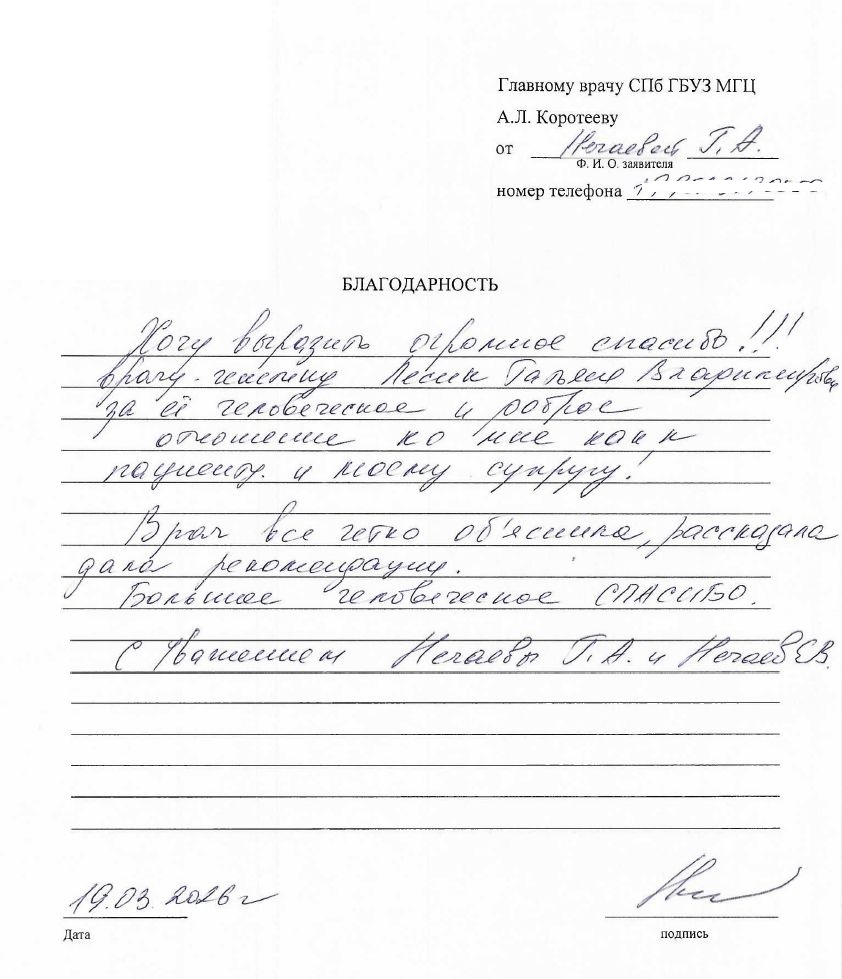 Главному врачу СПб ГБУЗ МГЦ
А.Л. Коротееву
от Нечаевой Г. А.
Ф. И. О. заявителя
номер телефона
БЛАГОДАРНОСТЬ
Хочу выразить огромное спасибо!!!
врачу Песик Владимировне
за её человеческое и доброе
отношение ко мне как к
пациенту и моему супругу!
Врач все четко об'яснила, рассказала
дала рекомендации.
Большое человеческое СПАСИБО.
С Уважением Нечаевы Г. А. и Нечаев Е.В.
19.03.2026 г
Дата
подпись